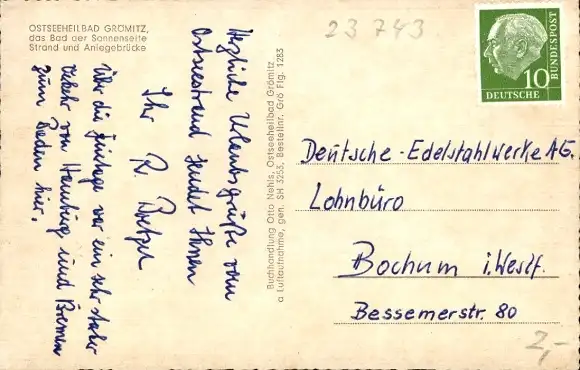 OSTSEEHEILBAD GRÖMITZ,
das Bad der Sonnenseite
Strand und Anlegebrücke
Herzliche Urlaubsgrüße vom
Ostseestrand sendet Ihnen
Ihr R.
Über die Feiertage war ein sehr starker
Verkehr von Hamburg und Bremen
zum Baden hier.
Buchhandlung Otto Nehls, Ostseeheilbad Grömitz
a Luftaufnahme, gen. SH 3253, Bestellnr. Grö Flg. 1285
23 743
10
DEUTSCHE
BUNDESPOST
Deutsche-Edelstahlwerke A.G.
Lohnbüro
Bochum i. Westf.
Bessemerstr. 80
2,-